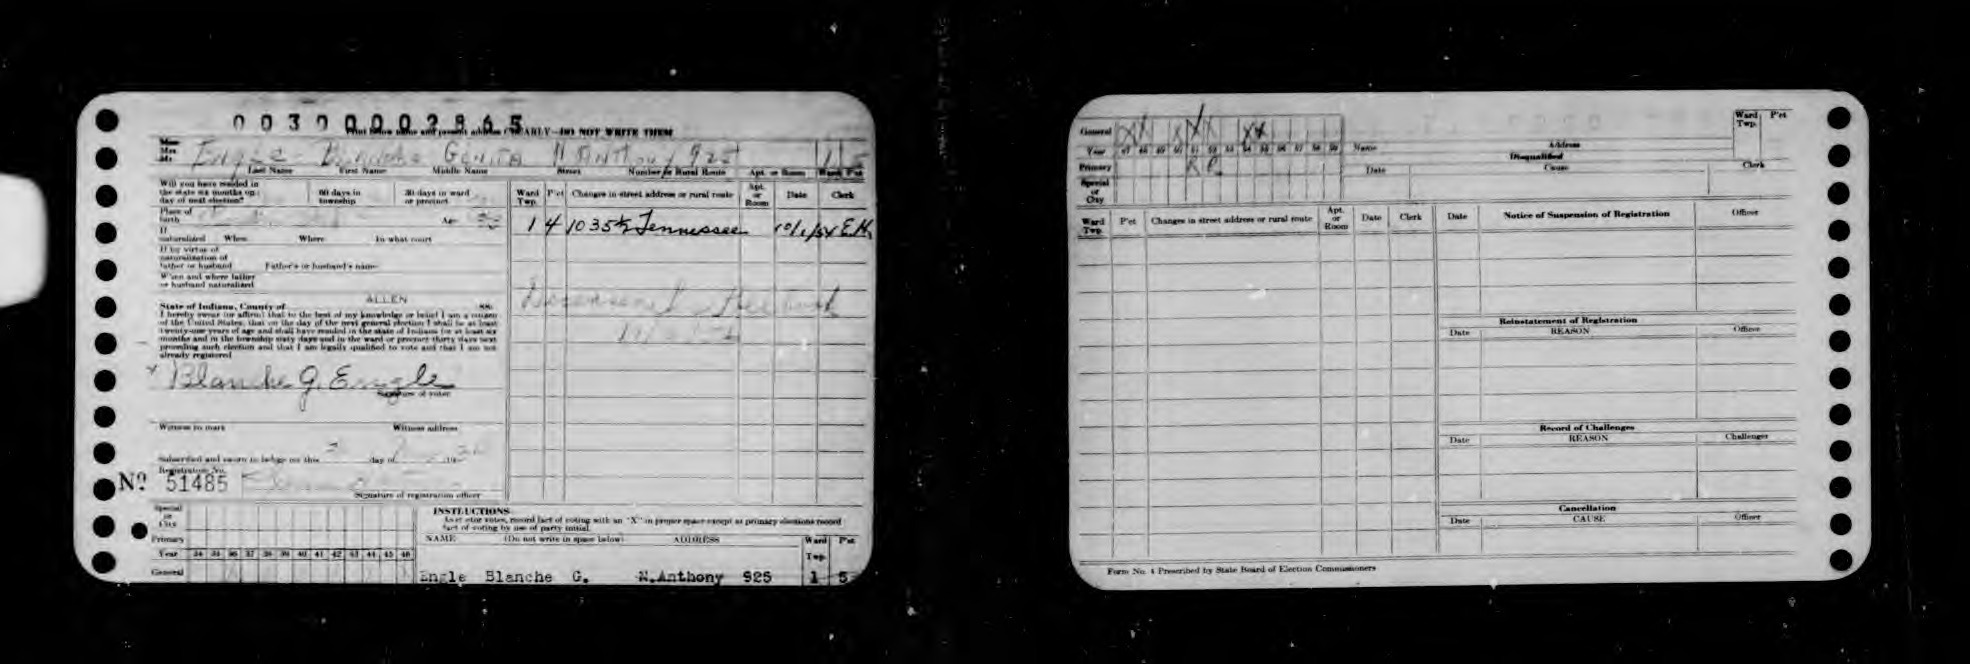 00300002865
Print below name and present address CLEARLY—DO NOT WRITE THEM
Miss
Mrs.
Mr.
Engle Blanche N Anthony 925 1 5
Last Name First Name Middle Name Street Number or Rural Route Apt. or Room Ward P'ct
Will you have resided in
the state six months on
day of next election?
60 days in
township
30 days in ward
or precinct
Place of
birth
Age
If
naturalized When Where In what court
If by virtue of
naturalization of
father or husband Father's or husband's name
When and where father
or husband naturalized
State of Indiana, County of ALLEN ss.
I hereby swear (or affirm) that to the best of my knowledge or belief I am a citizen
of the United States, that on the day of the next general election I shall be at least
twenty-one years of age and shall have resided in the state of Indiana for at least six
months and in the township sixty days and in the ward or precinct thirty days next
preceding such election and that I am legally qualified to vote and that I am not
already registered
x Blanche G. Engle
Signature of voter
Witness to mark Witness address
Subscribed and sworn to before me this day of 19
Registration No.
No. 51485
Signature of registration officer
Ward
Twp.
P'ct
Changes in street address or rural route
Apt.
or
Room
Date
Clerk
1 4 1035½ Tennessee 10/1/54 E.H.
Deceased
Special
or
City
Primary
Year 34 35 36 37 38 39 40 41 42 43 44 45 46
General
INSTRUCTIONS
As elector votes, record fact of voting with an "X" in proper space except at primary elections record
fact of voting by use of party initial.
NAME (Do not write in space below) ADDRESS Ward Twp. P'ct
Engle Blanche G. N.Anthony 925 1 5
General X X X X X X X
Year 47 48 49 50 51 52 53 54 55 56 57 58 59
Primary R R
Special
or
City
Name Address
Ward
Twp.
P'ct
Disqualified
Date Cause Clerk
Ward
Twp.
P'ct
Changes in street address or rural route
Apt.
or
Room
Date
Clerk
Date Notice of Suspension of Registration Officer
Reinstatement of Registration
Date REASON Officer
Record of Challenges
Date REASON Challenger
Cancellation
Date CAUSE Officer
Form No. 4 Prescribed by State Board of Election Commissioners